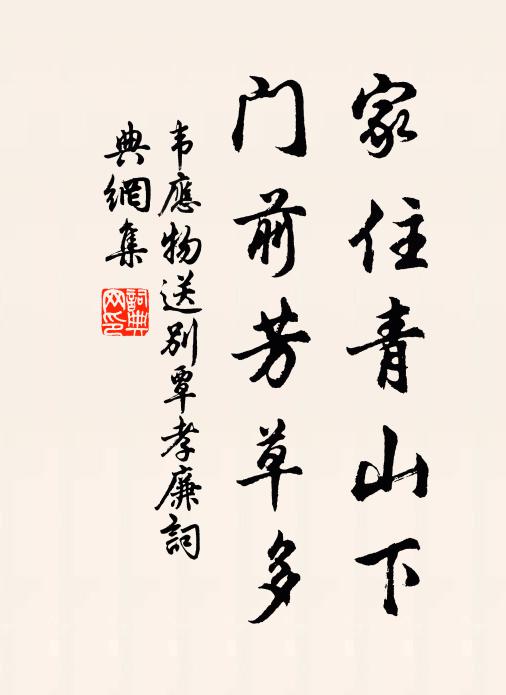 家住青山下
门前芳草多
韦應物送别覃孝廉詞
典網集
詞典
网印